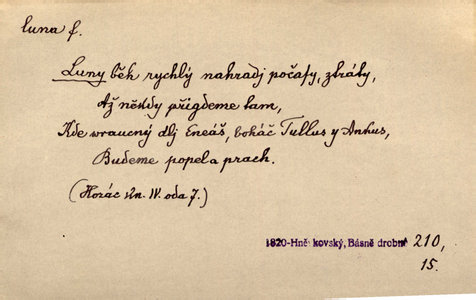 luna f.
Luny běh rychlý nahradj počasy, ztráty,
Až někdy přigdeme tam,
Kde wraucný dlj Eneáš, boháč Tullus y Ankus,
Budeme popel a prach.
(Horác kn. IV. oda 7.)
1820-Hněvkovský, Básně drobné 210,
15.